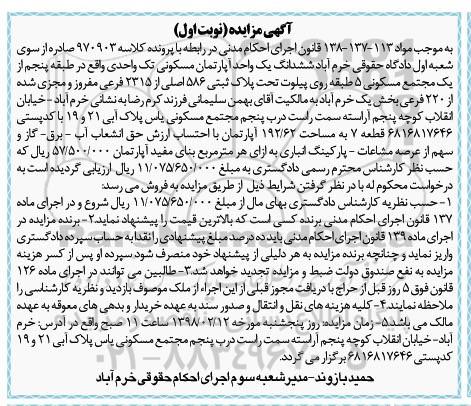 آگهی مزایده (نوبت اول)
به موجب مواد ۱۱۳-۱۳۷-۱۳۸ قانون اجرای احکام مدنی در رابطه با پرونده کلاسه ۹۷۰۹۰۳ صادره از سوی
شعبه اول دادگاه حقوقی خرم آباد ششدانگ یک واحد آپارتمان مسکونی تک واحدی واقع در طبقه پنجم از
یک مجتمع مسکونی ۵ طبقه روی پیلوت تحت پلاک ثبتی ۵۸۶ اصلی از ۲۳۱۵ فرعی مفروز و مجزی شده
از ۲۲۰ فرعی بخش یک خرم آباد به مالکیت آقای بهمن سلیمانی فرزند کرم رضا به نشانی خرم آباد - خیابان
انقلاب کوچه پنجم آراسته سمت راست درب پنجم مجتمع مسکونی یاس پلاک آبی ۲۱ و ۱۹ با کدپستی
۶۸۱۶۸۱۷۶۴۶ قطعه ۷ به مساحت ۱۹۲/۶۲ آپارتمان با احتساب ارزش حق انشعاب آب - برق - گاز و
سهم از عرصه مشاعات - پارکینگ انباری به ازای هر مترمربع بنای مفید آپارتمان ۵۷/۵۰۰/۰۰۰ ریال که
حسب نظر کارشناس محترم رسمی دادگستری به مبلغ ۱۱/۰۷۵/۶۵۰/۰۰۰ ریال ارزیابی گردیده است به
درخواست محکوم له با در نظر گرفتن شرایط ذیل از طریق مزایده به فروش می رسد:
۱- حسب نظریه کارشناس دادگستری بهای مال از مبلغ ۱۱/۰۷۵/۶۵۰/۰۰۰ ریال شروع و در اجرای ماده
۱۳۷ قانون اجرای احکام مدنی برنده کسی است که بالاترین قیمت را پیشنهاد نماید ۲- برنده مزایده در
اجرای ماده ۱۳۹ قانون اجرای احکام مدنی باید ده درصد مبلغ پیشنهادی را نقدا به حساب سپرده دادگستری
واریز نماید و چنانچه برنده مزایده به هر دلیلی از پیشنهاد خود منصرف شود سپرده او پس از کسر هزینه
مزایده به نفع صندوق دولت ضبط و مزایده تجدید خواهد شد ۳- طالبین می توانند در اجرای ماده ۱۲۶
قانون فوق ۵ روز قبل از حراج با دریافت مجوز قبلی از این اجراء از ملک موصوف بازدید و نظریه کارشناسی را
ملاحظه نمایند ۴- کلیه هزینه های نقل و انتقال و صدور سند به عهده خریدار و بدهی های معوقه به عهده
مالک می باشد ۵- زمان مزایده: روز پنجشنبه مورخه ۱۳۹۸/۰۲/۱۲ ساعت ۱۱ صبح واقع در آدرس: خرم
آباد - خیابان انقلاب کوچه پنجم آراسته سمت راست درب پنجم مجتمع مسکونی یاس پلاک آبی ۲۱ و ۱۹
کدپستی ۶۸۱۶۸۱۷۶۴۶ برگزار می گردد.
حمید بازوند - مدیر شعبه سوم اجرای احکام حقوقی خرم آباد